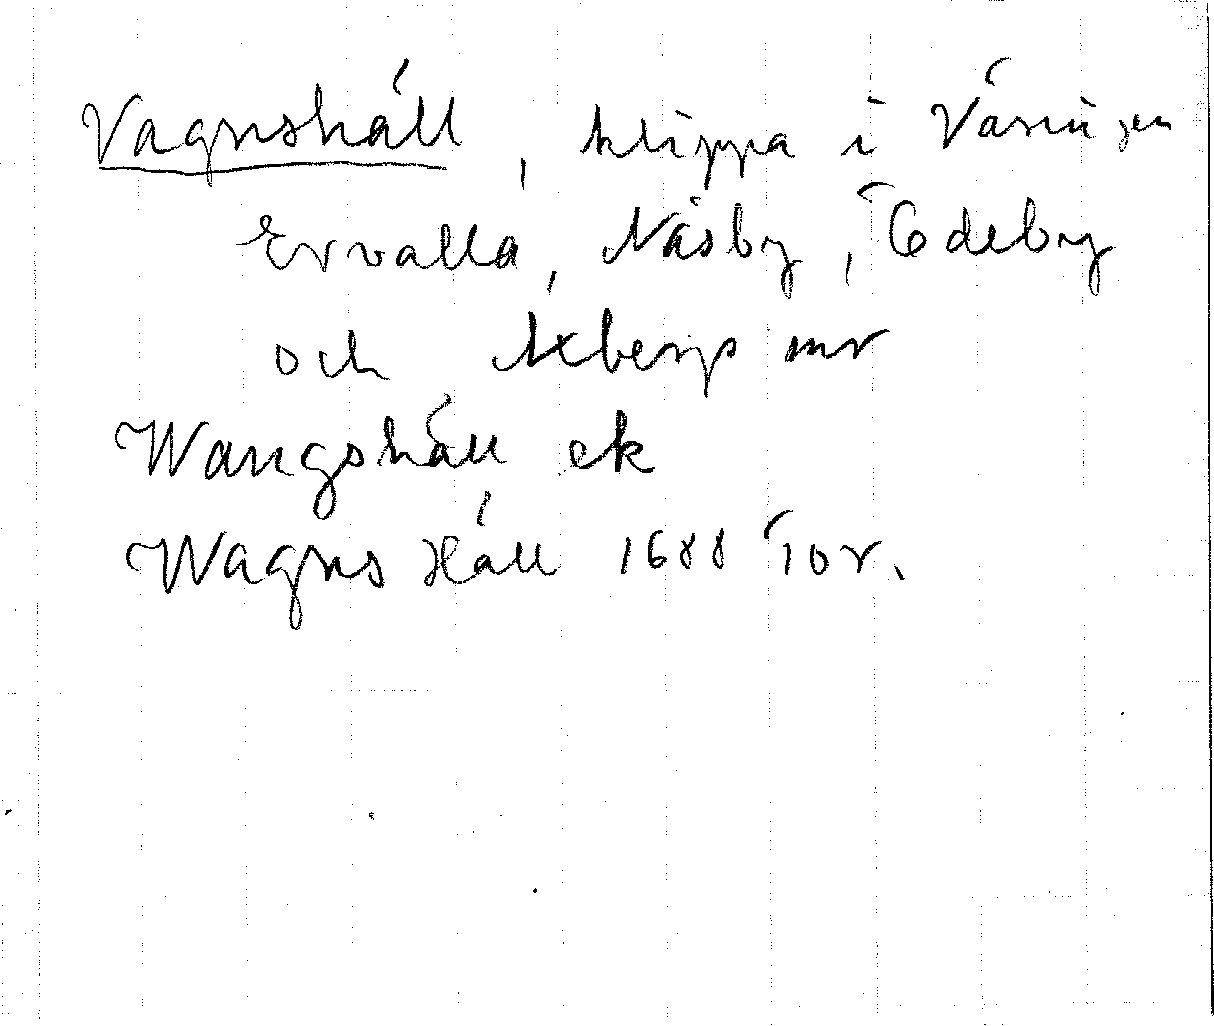 Vagnshäll, klippa i Väringen
Ervalla, Näsby, Ödeby
och Axbergs snr
Wangshäll ek
Wagns Häll 1688 Jor.